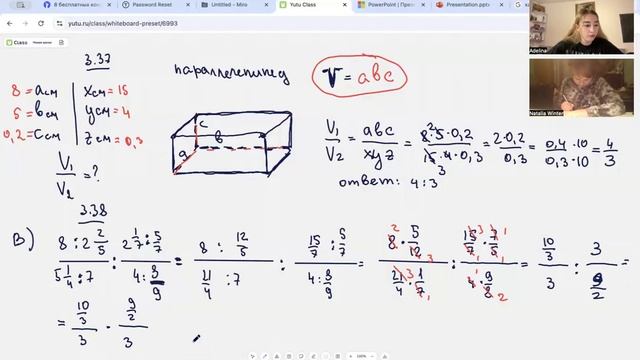 8 бесплатных кон
Password Reset
Untitled – Miro
Yutu Class
PowerPoint | През
Presentation.pptx
yutu.ru/class/whiteboard-preset/6993
Class
Adelina
Natalia Winter
3.37
параллелепипед
V = abc
8 = a см | x см = 15
5 = b см | y см = 4
0,2 = c см | z см = 0,3
V₁/V₂ = ?
a b c
V₁/V₂ = abc/xyz = 8·5·0,2/15·4·0,3 = 2·0,2/0,3 = 0,4·10/0,3·10 = 4/3
ответ: 4:3
3.38
В) 8 : 2 2/5 / 5 1/4 : 7 : 2 1/7 : 5/7 / 4 : 8/9 = 8 : 12/5 / 21/4 : 7 : 15/7 : 5/7 / 4 : 8/9 = 8 · 5/12 / 21/4 · 1/7 : 15/7 · 7/5 / 4 · 9/8 = 10/3 / 3 : 3 / 9/2 =
= 10/3 / 3 · 9/2 / 3
100%